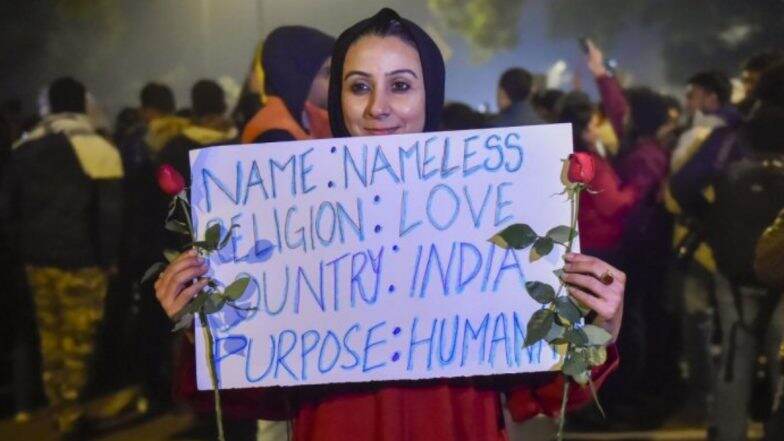 NAME: NAMELESS
RELIGION: LOVE
COUNTRY: INDIA
PURPOSE: